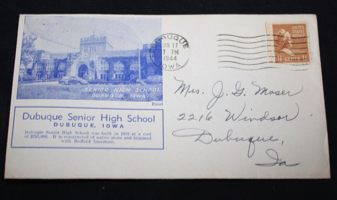 DUBUQUE
7 PM
1944
IOWA
SENIOR HIGH SCHOOL
DUBUQUE, IOWA
Dubuque Senior High School
DUBUQUE, IOWA
Dubuque Senior High School was built in at a cost
of It is constructed of native stone and trimmed
with Bedford limestone.
Mrs. J. G. Moser
2216 Windsor
Dubuque,
Ia